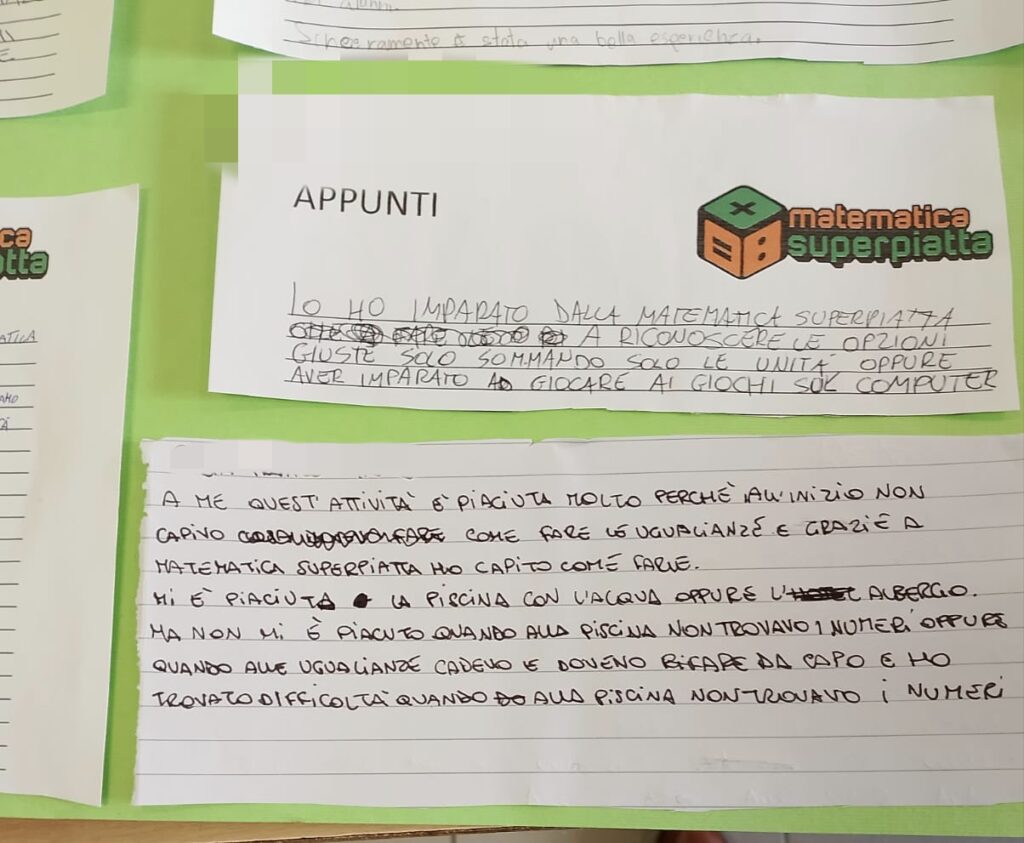 Sinceramente è stata una bella esperienza.
APPUNTI
matematica
superpiatta
IO HO IMPARATO DALLA MATEMATICA SUPERPIATTA
A RICONOSCERE LE OPZIONI
GIUSTE SOLO SOMMANDO SOLO LE UNITÀ OPPURE
AVER IMPARATO A GIOCARE AI GIOCHI SUL COMPUTER
A ME QUEST'ATTIVITÀ È PIACIUTA MOLTO PERCHÈ ALL'INIZIO NON
CAPIVO COME FARE LE UGUALIANZE E GRAZIE A
MATEMATICA SUPERPIATTA HO CAPITO COME FARLE.
MI È PIACIUTA LA PISCINA CON L'ACQUA OPPURE L'ALBERGIO.
MA NON MI È PIACUTO QUANDO ALLA PISCINA NON TROVAVO I NUMERI OPPURE
QUANDO ALLE UGUALIANZE CADEVO E DOVEVO RIFARE DA CAPO E HO
TROVATO DIFFICOLTÀ QUANDO ALLA PISCINA NON TROVAVO I NUMERI
ca
tta
ATICA